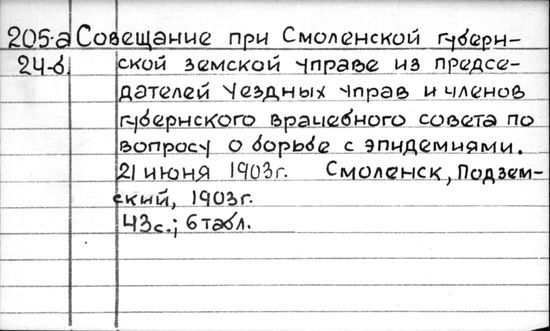 205-а Совещание при Смоленской губерн-
24-б. ской земской управе из предсе-
дателей уездных управ и членов
губернского врачебного совета по
вопросу о борьбе с эпидемиями.
21 июня 1903г. Смоленск, Подзем-
ский, 1903г.
43с.; 6 табл.